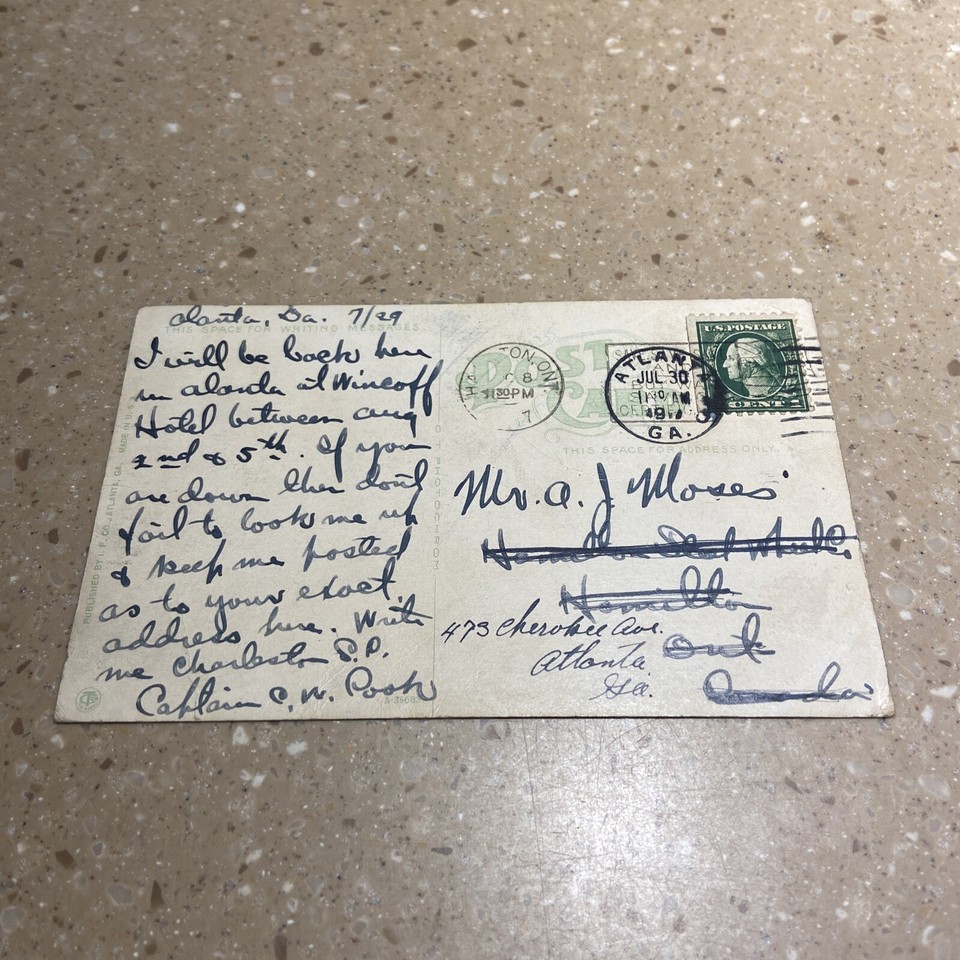 alanta, Ga. 7/29
THIS SPACE FOR WRITING MESSAGES
I will be back here
in alanda at Wincoff
Hotel between aug
2nd & 5th. If you
are down then don't
fail to look me up
& keep me posted
as to your exact
address here. Write
me Charleston S.C.
Captain C. W.
PUBLISHED BY I. F. CO., ATLANTA, GA. MADE IN U.S.A.
POST CARD
HAMILTON ONT
8
11 30 PM
7
ATLANTA
JUL 30
11 30 AM
191
GA.
U.S. POSTAGE
CENTS
THIS SPACE FOR ADDRESS ONLY
Mr. A. J. Moses
Hamilton Steel Wheel Co.
Hamilton
Ont
Canada
473 Cherokee Ave.
Atlanta
Ga.